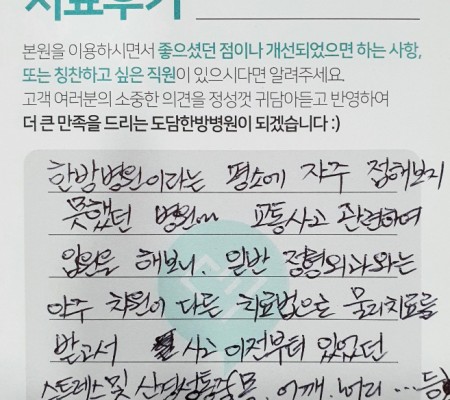 치료후기
본원을 이용하시면서 좋으셨던 점이나 개선되었으면 하는 사항,
또는 칭찬하고 싶은 직원이 있으시다면 알려주세요.
고객 여러분의 소중한 의견을 정성껏 귀담아듣고 반영하여
더 큰 만족을 드리는 도담한방병원이 되겠습니다 :)
한방병원이라는 평소에 자주 접해보지
못했던 병원에 교통사고 관련하여
입원을 해보니, 일반 정형외과와는
아주 차원이 다른 치료법으로 물리치료를
받고서 사고 이전부터 있었던
스트레스 및 산발성통증 몸, 어깨, 머리 ... 등